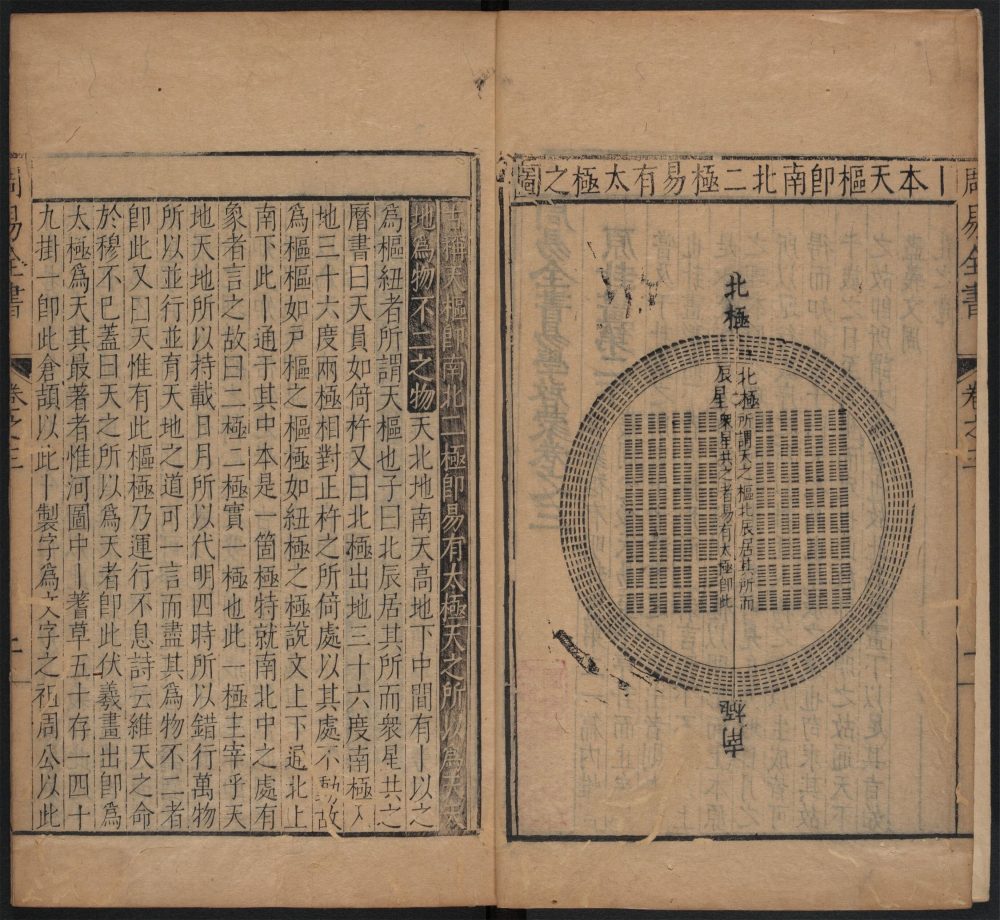 周易全書
卷之三
丨本天樞卽南北二極易有太極之圖
北極
北極所謂天之樞北辰居其所而
辰星衆星共之者易有太極卽此
南極
古稱天樞卽南北二極卽易有太極天之所以爲天天
地爲物不二之物天北地南天高地下中間有丨以之
爲樞紐者所謂天樞也子曰北辰居其所而衆星共之
曆書曰天員如倚杵又曰北極出地三十六度南極入
地三十六度兩極相對正杵之所倚處以其處不動故
爲樞樞如戸樞之樞極如紐極之極說文上下追北上
南下此丨通于其中本是一箇極特就南北中之處有
象者言之故曰二極二極實一極也此一極主宰乎天
地天地所以持載日月所以代明四時所以錯行萬物
所以並行並有天地之道可一言而盡其爲物不二者
卽此又曰天惟有此樞極乃運行不息詩云維天之命
於穆不巳蓋曰天之所以爲天者卽此伏羲畫出卽爲
太極爲天其最著者惟河圖中丨蓍草五十存一四十
九掛一卽此倉頡以此丨製字爲文字之祖周公以此
周易全書
卷之三